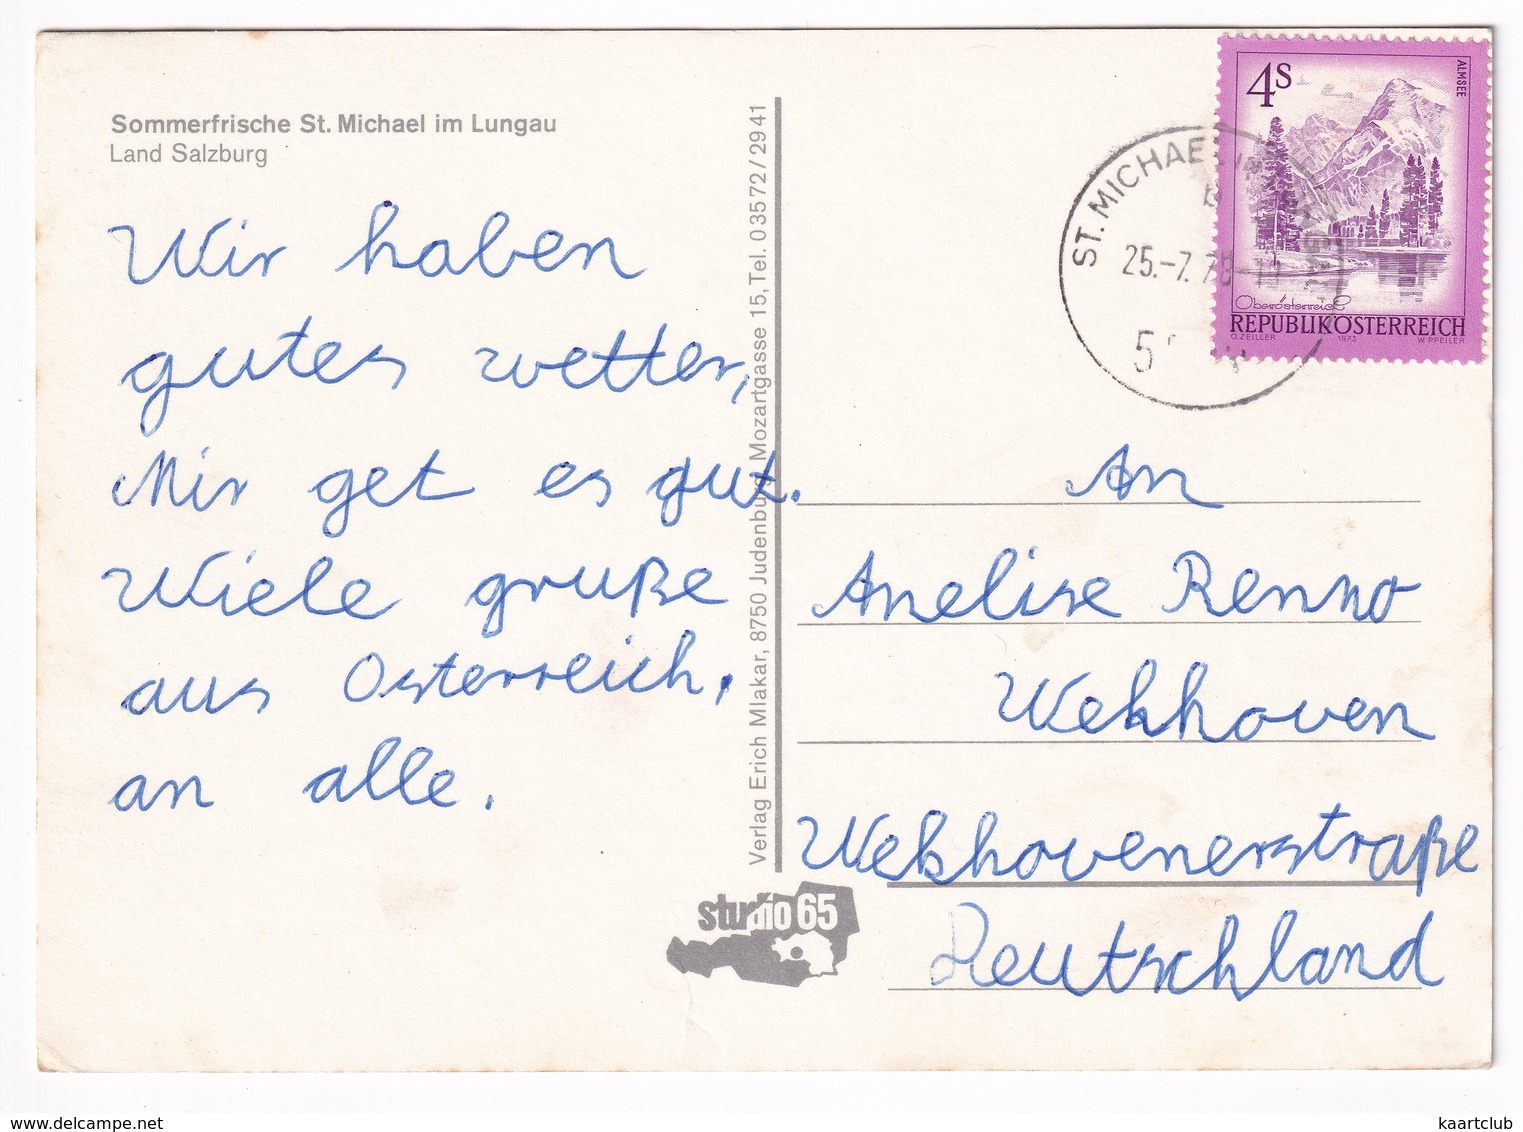 Sommerfrische St. Michael im Lungau
Land Salzburg
Wir haben
gutes wetter,
Mir get es gut.
Wiele gruße
aus Osterreich,
an alle.
Verlag Erich Mlakar, 8750 Judenburg, Mozartgasse 15, Tel. 0 35 72 / 29 41
studio 65
4S
ALMSEE
Oberösterreich
REPUBLIK ÖSTERREICH
O. ZEILLER 1973 W. PFEILER
ST. MICHAEL IM LUNGAU
25.-7.78
An
Anelise Renno
Wekhoven
Wekhovenerstraße
Deutschland
kaartclub